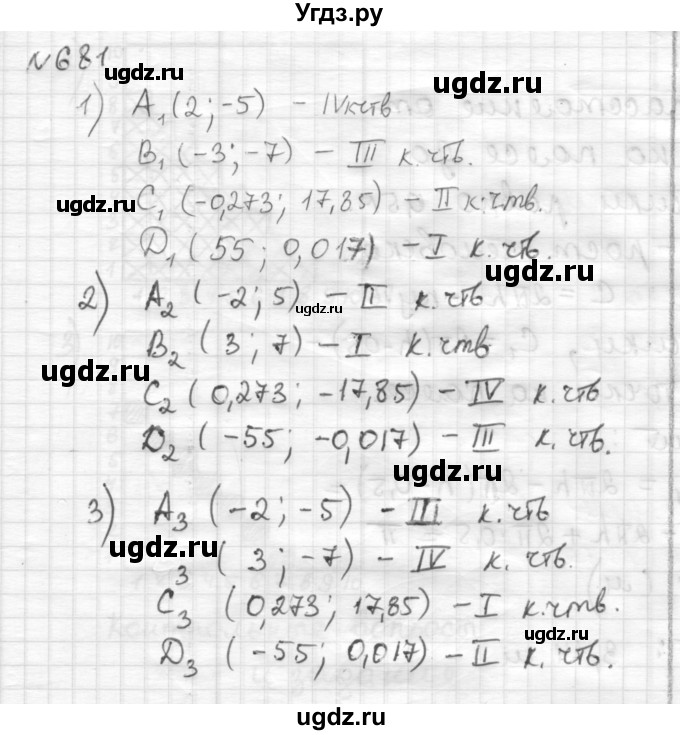 Угдз.ру
№681
ugdz.ru
ugdz.ru
1) A₁(2;-5) - IV к чтв
B₁(-3;-7) - III к.чть.
ugdz.ru
C₁(-0,273; 17,85) - II к.чтв.
D₁(55; 0,017) - I к.чть.
ugdz.ru
2) A₂(-2; 5) - II к.чть
ugdz.ru
B₂(3; 7) - I к.чтв
ugdz.ru
C₂(0,273; -17,85) - IV к.чтв
D₂(-55; -0,017) - III к.чтв.
ugdz.ru
3) A₃(-2; -5) - III к.чтв
ugdz.ru
₃(3; -7) - IV к.чтв.
C₃(0,273; 17,85) - I к.чтв.
ugdz.ru
D₃(-55; 0,017) - II к.чтв.
ugdz.ru